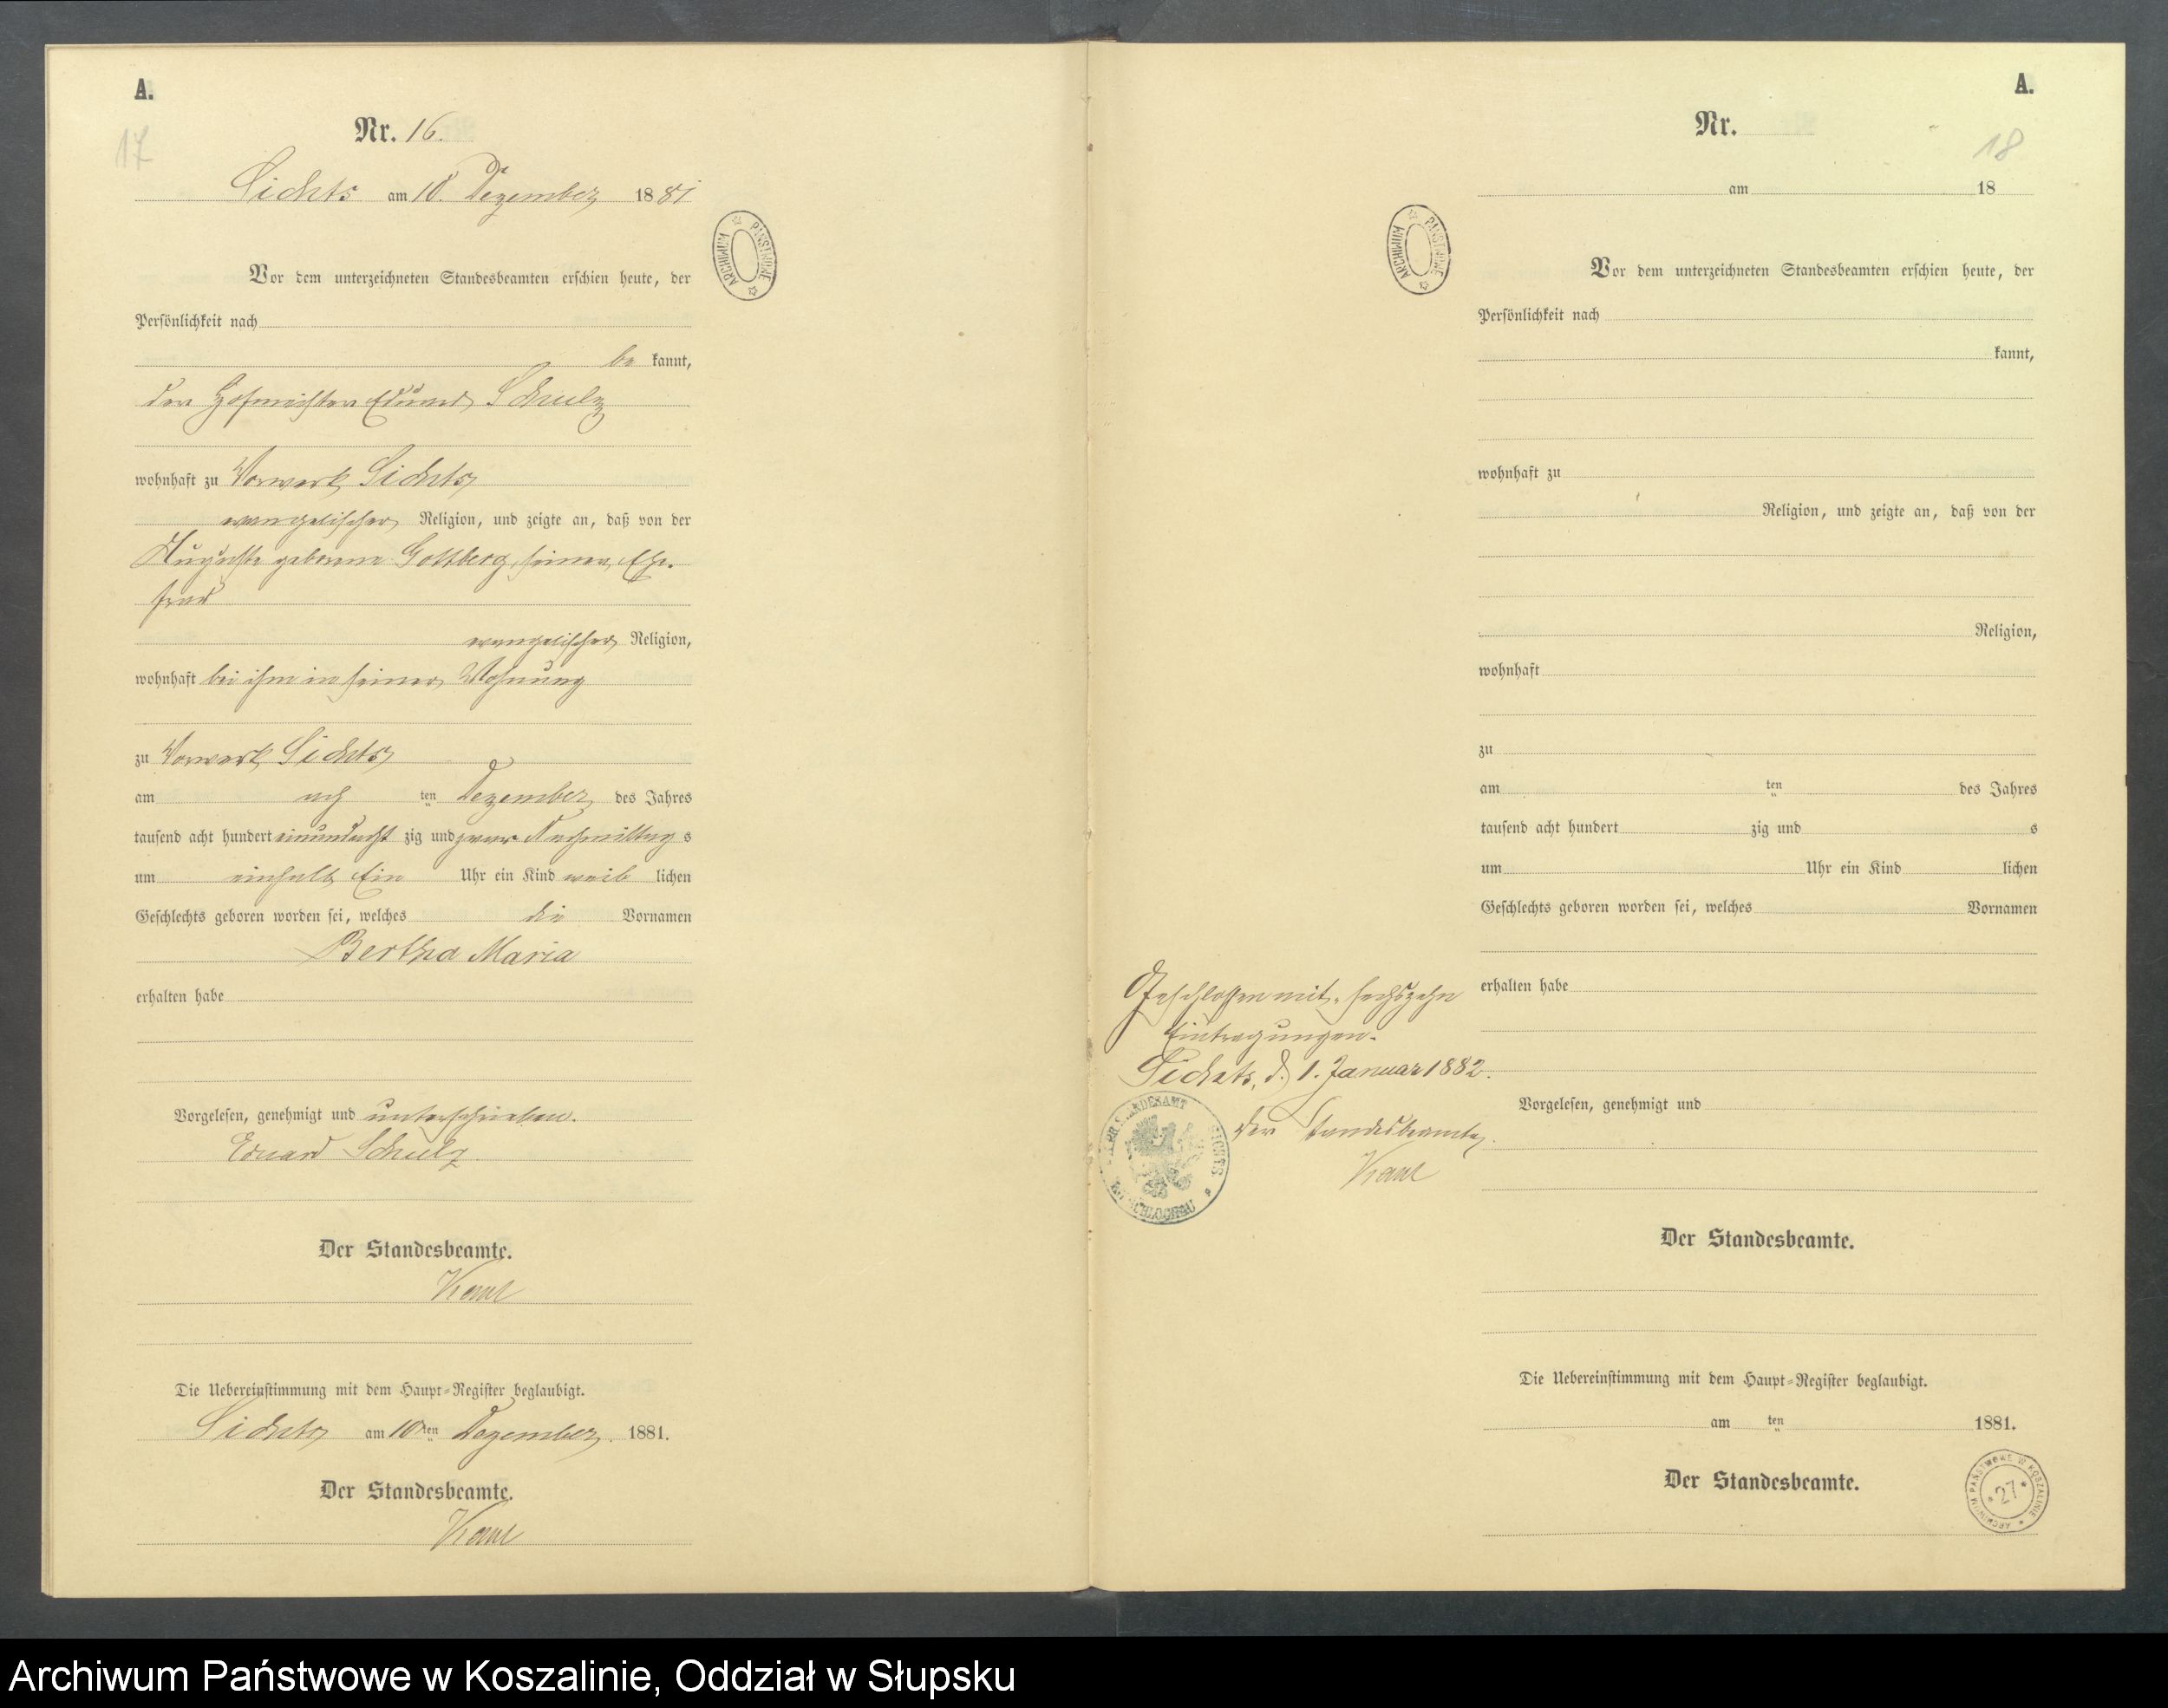 A.
17
Nr. 16.
Sichts am 10. Dezember 1881
Vor dem unterzeichneten Standesbeamten erschien heute, der
Persönlichkeit nach
be kannt,
der Hofmeister Eduard Schulz
wohnhaft zu Vorwerk Sichts
evangelischer Religion, und zeigte an, daß von der
Auguste geborene Gottberg, seiner Ehe-
frau
evangelischer Religion,
wohnhaft bei ihm in seiner Wohnung
zu Vorwerk Sichts
am ach ten Dezember des Jahres
tausend acht hundert einundacht zig und zwar Nachmittag s
um einhalb Ein Uhr ein Kind weib lichen
Geschlechts geboren worden sei, welches die Vornamen
Bertha Maria
erhalten habe
Vorgelesen, genehmigt und unterschrieben.
Eduard Schulz
Der Standesbeamte.
Die Uebereinstimmung mit dem Haupt-Register beglaubigt.
Sichts am 10ten Dezember 1881.
Der Standesbeamte.
ARCHIWUM PAŃSTWOWE
A.
Nr.
18
am 18
ARCHIWUM PAŃSTWOWE
Vor dem unterzeichneten Standesbeamten erschien heute, der
Persönlichkeit nach
kannt,
wohnhaft zu
Religion, und zeigte an, daß von der
Religion,
wohnhaft
zu
am ten des Jahres
tausend acht hundert zig und s
um Uhr ein Kind lichen
Geschlechts geboren worden sei, welches Vornamen
erhalten habe
Geschlossen mit sechszehn
Eintragungen.
Sichts, d. 1. Januar 1882.
Der Standesbeamte.
STANDESAMT SICHTS SCHLOCHAU
Vorgelesen, genehmigt und
Der Standesbeamte.
Die Uebereinstimmung mit dem Haupt-Register beglaubigt.
am ten 1881.
Der Standesbeamte.
ARCHIWUM PAŃSTWOWE W KOSZALINIE
* 27 *
Archiwum Państwowe w Koszalinie, Oddział w Słupsku